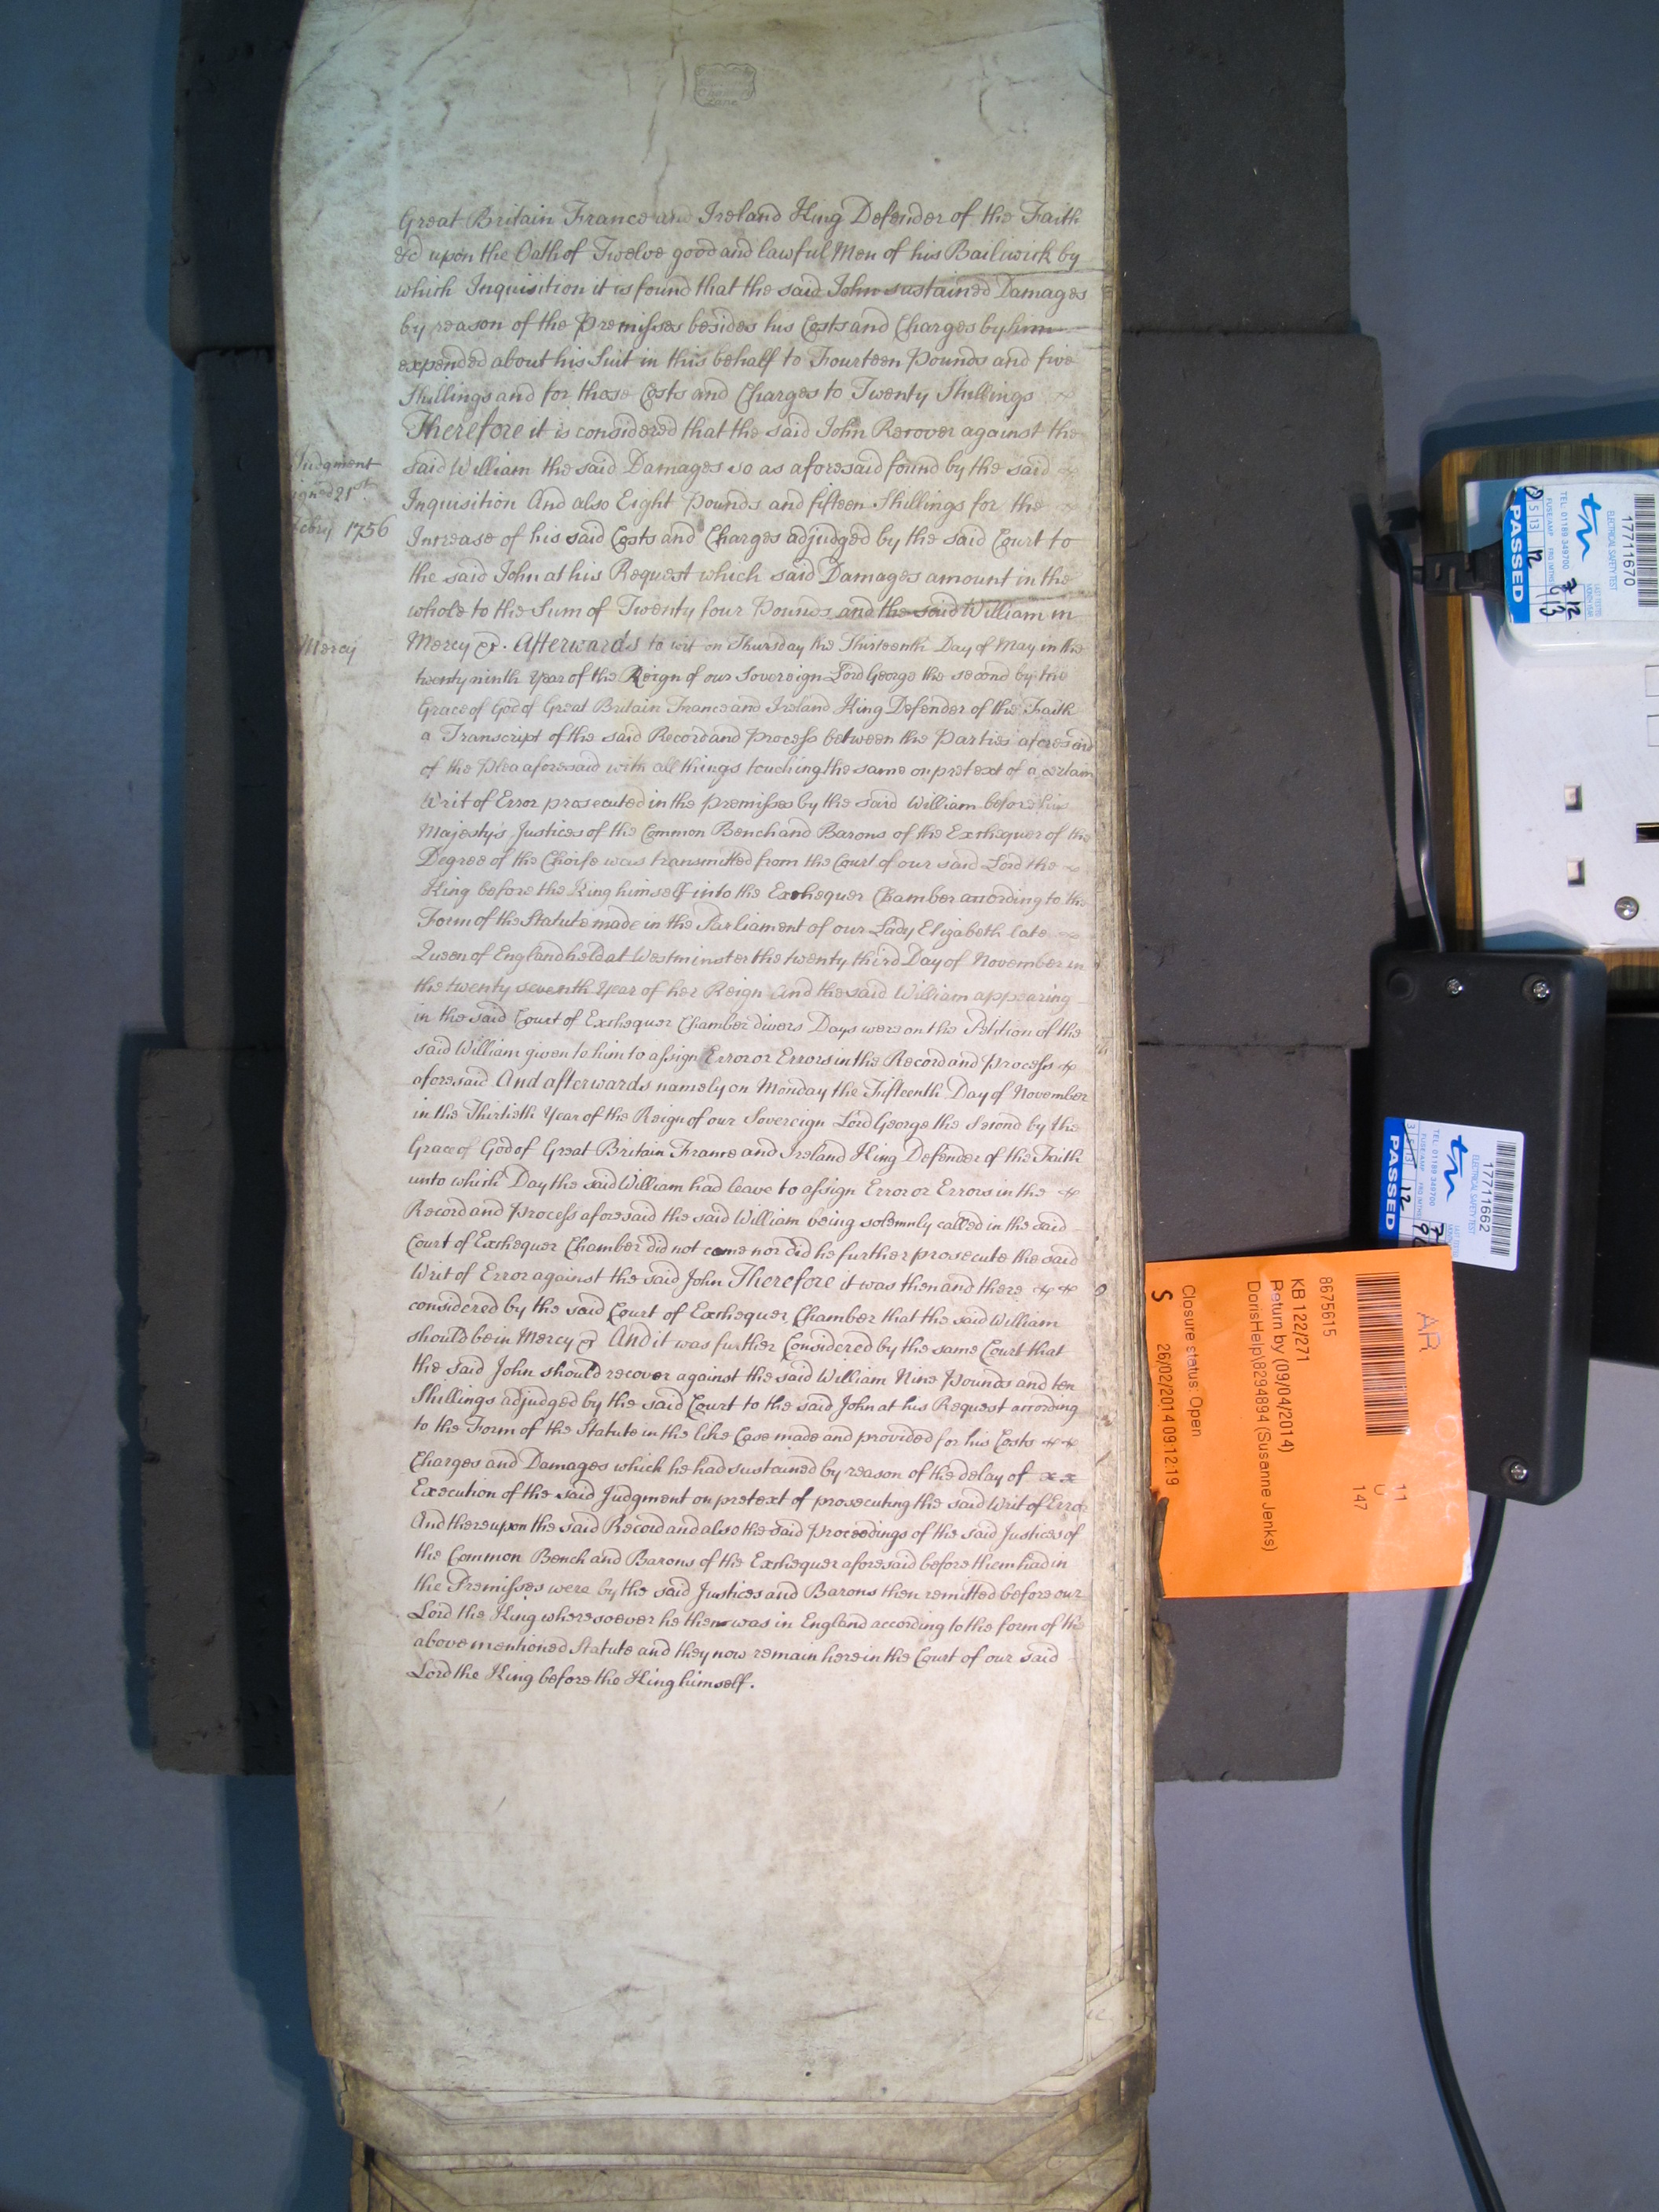 Great Britain France and Ireland King Defender of the Faith
&c upon the Oath of Twelve good and lawful Men of his Bailiwick by
which Inquisition it is found that the said John sustained Damages
by reason of the Premisses besides his Costs and Charges by him
expended about his Suit in this behalf to Fourteen Pounds and five
Shillings and for those Costs and Charges to Twenty Shillings
Therefore it is considered that the said John Recover against the
Judgment
igned 21st
Febry 1756
said William the said Damages so as aforesaid found by the said
Inquisition And also Eight Pounds and fifteen Shillings for the
Increase of his said Costs and Charges adjudged by the said Court to
the said John at his Request which said Damages amount in the
whole to the Sum of Twenty four Pounds and the said William in
Mercy
Mercy &c. Afterwards to wit on Thursday the Thirteenth Day of May in the
twenty ninth Year of the Reign of our Sovereign Lord George the second by the
Grace of God of Great Britain France and Ireland King Defender of the Faith
a Transcript of the said Record and Process between the Parties aforesaid
of the Plea aforesaid with all things touching the same on pretext of a certain
Writ of Error prosecuted in the premisses by the said William before his
Majesty's Justices of the Common Bench and Barons of the Exchequer of the
Degree of the Choife was transmitted from the Court of our said Lord the
King before the King himself into the Exchequer Chamber according to the
Form of the Statute made in the Parliament of our Lady Elizabeth late
Queen of England held at Westminster the twenty third Day of November in
the twenty seventh Year of her Reign And the said William appearing
in the said Court of Exchequer Chamber divers Days were on the Petition of the
said William given to him to assign Error or Errors in the Record and Process
aforesaid And afterwards namely on Monday the Fifteenth Day of November
in the Thirtieth Year of the Reign of our Sovereign Lord George the Second by the
Grace of God of Great Britain France and Ireland King Defender of the Faith
unto which Day the said William had leave to assign Error or Errors in the
Record and Process aforesaid the said William being solemnly called in the said
Court of Exchequer Chamber did not come nor did he further prosecute the said
Writ of Error against the said John Therefore it was then and there
considered by the said Court of Exchequer Chamber that the said William
should be in Mercy &c And it was further Considered by the same Court that
the said John should recover against the said William Nine Pounds and ten
Shillings adjudged by the said Court to the said John at his Request according
to the Form of the Statute in the like Case made and provided for his Costs
Charges and Damages which he had sustained by reason of the delay of
Execution of the said Judgment on pretext of prosecuting the said Writ of Error
And thereupon the said Record and also the said Proceedings of the said Justices of
the Common Bench and Barons of the Exchequer aforesaid before them had in
the Premisses were by the said Justices and Barons then remitted before our
Lord the King wheresoever he then was in England according to the form of the
above mentioned Statute and they now remain here in the Court of our said
Lord the King before the King himself.
AR
11
U
147
8675615
KB 122/271
Return by (09/04/2014)
DorisHelp\8294894 (Susanne Jenks)
Closure status: Open
S 26/02/2014 09:12:19
17711670
ELECTRICAL SAFETY TEST
TEL: 01189 349700
PASSED
17711662
ELECTRICAL SAFETY TEST
TEL: 01189 349700
PASSED